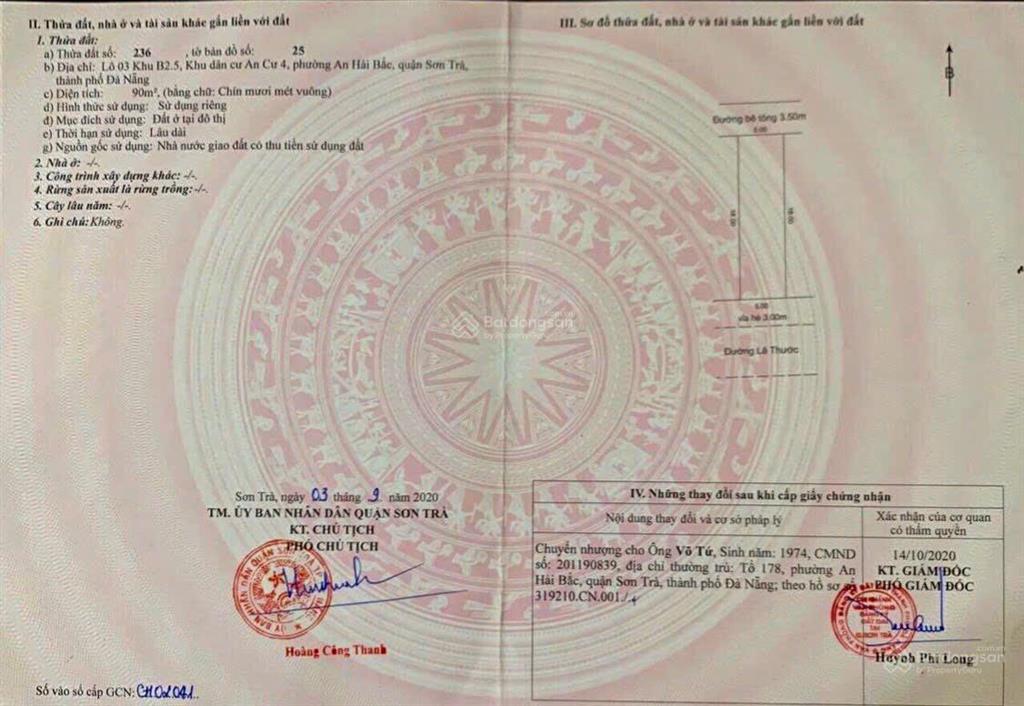 II. Thửa đất, nhà ở và tài sản khác gắn liền với đất
1. Thửa đất:
a) Thửa đất số: 236 , tờ bản đồ số: 25
b) Địa chỉ: Lô 03 Khu B2.5, Khu dân cư An Cư 4, phường An Hải Bắc, quận Sơn Trà,
thành phố Đà Nẵng
c) Diện tích: 90m², (bằng chữ: Chín mươi mét vuông)
d) Hình thức sử dụng: Sử dụng riêng
đ) Mục đích sử dụng: Đất ở tại đô thị
e) Thời hạn sử dụng: Lâu dài
g) Nguồn gốc sử dụng: Nhà nước giao đất có thu tiền sử dụng đất
2. Nhà ở: -/-.
3. Công trình xây dựng khác: -/-.
4. Rừng sản xuất là rừng trồng: -/-.
5. Cây lâu năm: -/-.
6. Ghi chú: Không.
Sơn Trà, ngày 03 tháng 9 năm 2020
TM. ỦY BAN NHÂN DÂN QUẬN SƠN TRÀ
KT. CHỦ TỊCH
PHÓ CHỦ TỊCH
Hoàng Công Thanh
Số vào sổ cấp GCN: CH02041..
III. Sơ đồ thửa đất, nhà ở và tài sản khác gắn liền với đất
B
Đường bê tông 3.50m
5.00
18.00
18.00
5.00
vỉa hè 3.00m
Đường Lê Thước
Batdongsan
by PropertyGuru
IV. Những thay đổi sau khi cấp giấy chứng nhận
Nội dung thay đổi và cơ sở pháp lý
Xác nhận của cơ quan
có thẩm quyền
Chuyển nhượng cho Ông Võ Tứ, Sinh năm: 1974, CMND
số: 201190839, địa chỉ thường trú: Tổ 178, phường An
Hải Bắc, quận Sơn Trà, thành phố Đà Nẵng; theo hồ sơ số
319210.CN.001./.
14/10/2020
KT. GIÁM ĐỐC
PHÓ GIÁM ĐỐC
Huỳnh Phi Long